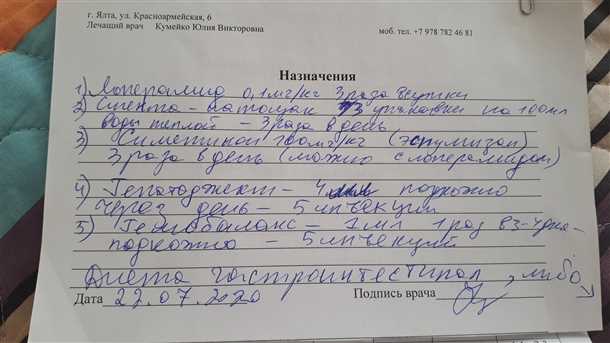 г. Ялта, ул. Красноармейская, 6
Лечащий врач Кумейко Юлия Викторовна моб. тел. +7 978 782 46 81
Назначения
1) Лоперамид 0,1мг/кг 3 раза в сутки
2) - натощак 1/3 упаковки на 100мл
воды теплой - 3 раза в день
3) Симетикон мг/кг (эспумизан)
3 раза в день (можно с лоперамидом)
4) Гепатоджект - 4 мл подкожно
через день - 5 инъекций
5) - 1 мл 1 раз в 3-4 дня -
подкожно - 5 инъекций
Диета гастроинтестинал, либо
Дата 22.07.2020 Подпись врача